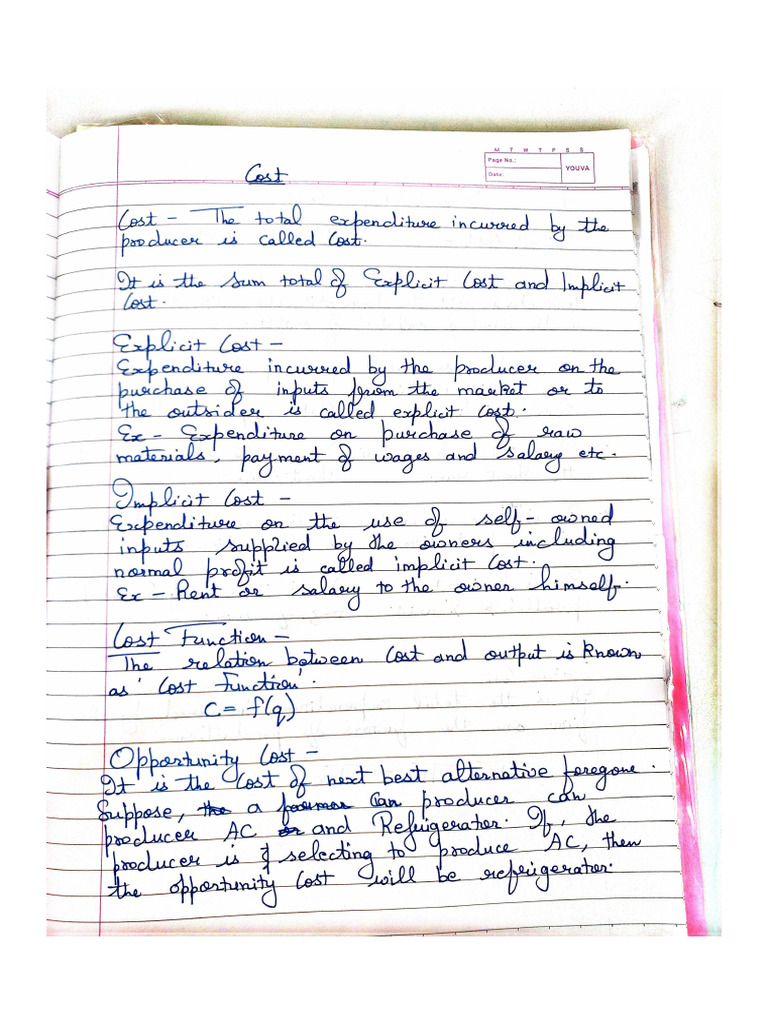 M T W T F S S
Page No.:
YOUVA
Date:
Cost
Cost - The total expenditure incurred by the
producer is called Cost.
It is the sum total of Explicit Cost and Implicit
Cost.
Explicit Cost -
Expenditure incurred by the producer on the
purchase of inputs from the market or to
the outsider is called explicit cost.
Ex - Expenditure on purchase of raw
materials, payment of wages and salary etc.
Implicit Cost -
Expenditure on the use of self-owned
inputs supplied by the owners including
normal profit is called implicit Cost.
Ex - Rent or salary to the owner himself.
Cost Function -
The relation between Cost and output is known
as 'Cost Function'.
C = f(q)
Opportunity Cost -
It is the Cost of next best alternative foregone.
Suppose, the a farmer can producer can
producer AC or and Refrigerator. If, the
producer is selecting to produce AC, then
the opportunity Cost will be refrigerator.